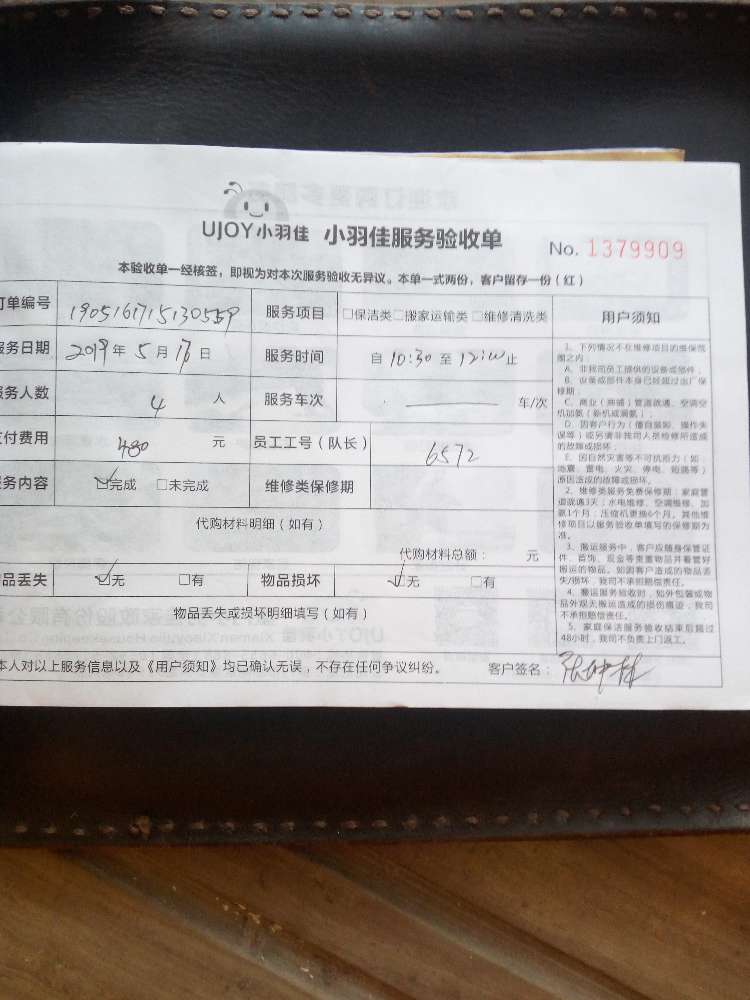 UJOY小羽佳 小羽佳服务验收单 No. 1379909
本验收单一经核签，即视为对本次服务验收无异议。本单一式两份，客户留存一份（红）
订单编号 1905161715130559 服务项目 □保洁类□搬家运输类□维修清洗类 用户须知
服务日期 2019年5月17日 服务时间 自10:30至12:00止
服务人数 4 人 服务车次 —— 车/次
支付费用 480 元 员工工号（队长） 6572
服务内容 ☑完成 □未完成 维修类保修期
代购材料明细（如有）
代购材料总额： 元
物品丢失 ☑无 □有 物品损坏 ☑无 □有
物品丢失或损坏明细填写（如有）
本人对以上服务信息以及《用户须知》均已确认无误，不存在任何争议纠纷。 客户签名：
1、下列情况不在维修项目的维保范
围之内：
A、非我司员工提供的设备或部件；
B、设备或部件本身已经超过出厂保
修期；
C、商业（商铺）管道疏通、空调空
机加氨（新机或漏氨）；
D、因客户行为（擅自装卸、操作失
误等）或另请非我司人员检修所造成
的故障或损坏；
E、因自然灾害等不可抗拒力（如
地震、雷电、火灾、停电、短路等）
原因造成的故障或损坏。
2、维修类服务免费保修期：家庭管
道疏通3天；水电维修、空调维修、加
氨1个月；压缩机更换6个月。其他维
修项目以服务验收单填写的保修期为
准。
3、搬运服务中，客户应随身保管证
件、首饰、现金等贵重物品并看管好
搬运的物品。如因客户造成的物品丢
失/损坏，我司不承担赔偿责任。
4、搬运服务验收时，如外包装或物
品外观无搬运造成的损伤痕迹，我司
不承担赔偿责任。
5、家庭保洁服务验收结束后超过
48小时，我司不负责上门返工。